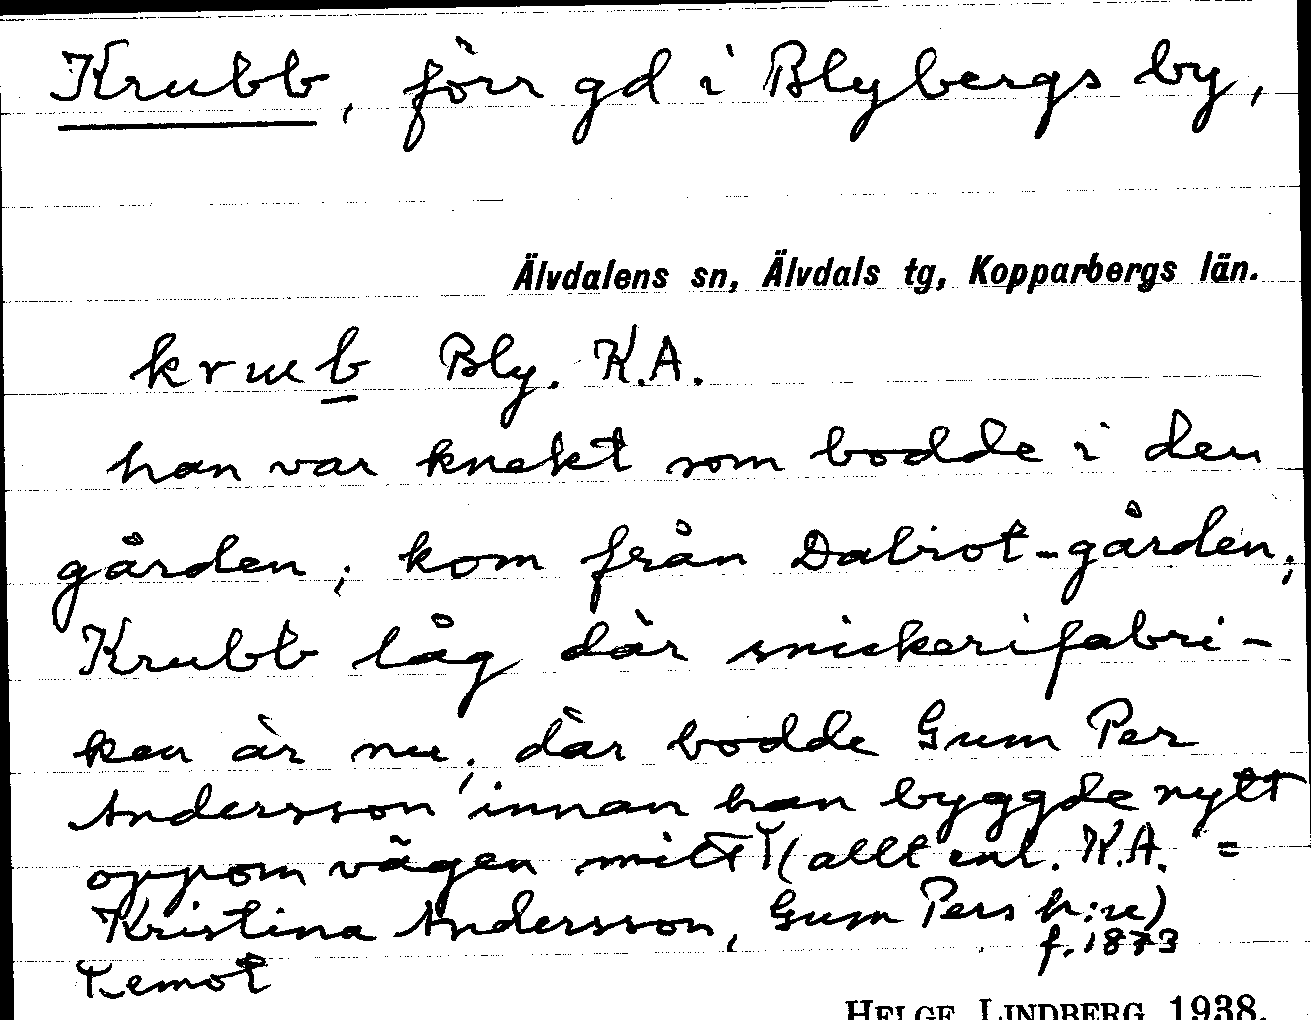 Krubb, förr gd i Blybergs by,
Älvdalens sn, Älvdals tg, Kopparbergs län.
krub Bly. K.A.
han var knekt som bodde i den
gården; kom från Dalrot-gården;
Krubb låg där snickerifabri-
ken är nu; där bodde Gum Per
Andersson innan han byggde nytt
oppom vägen mitt T (allt enl. K.A. =
Kristina Andersson, Gum Pers h:u)
f. 1873
T emot
HELGE LINDBERG 1938.